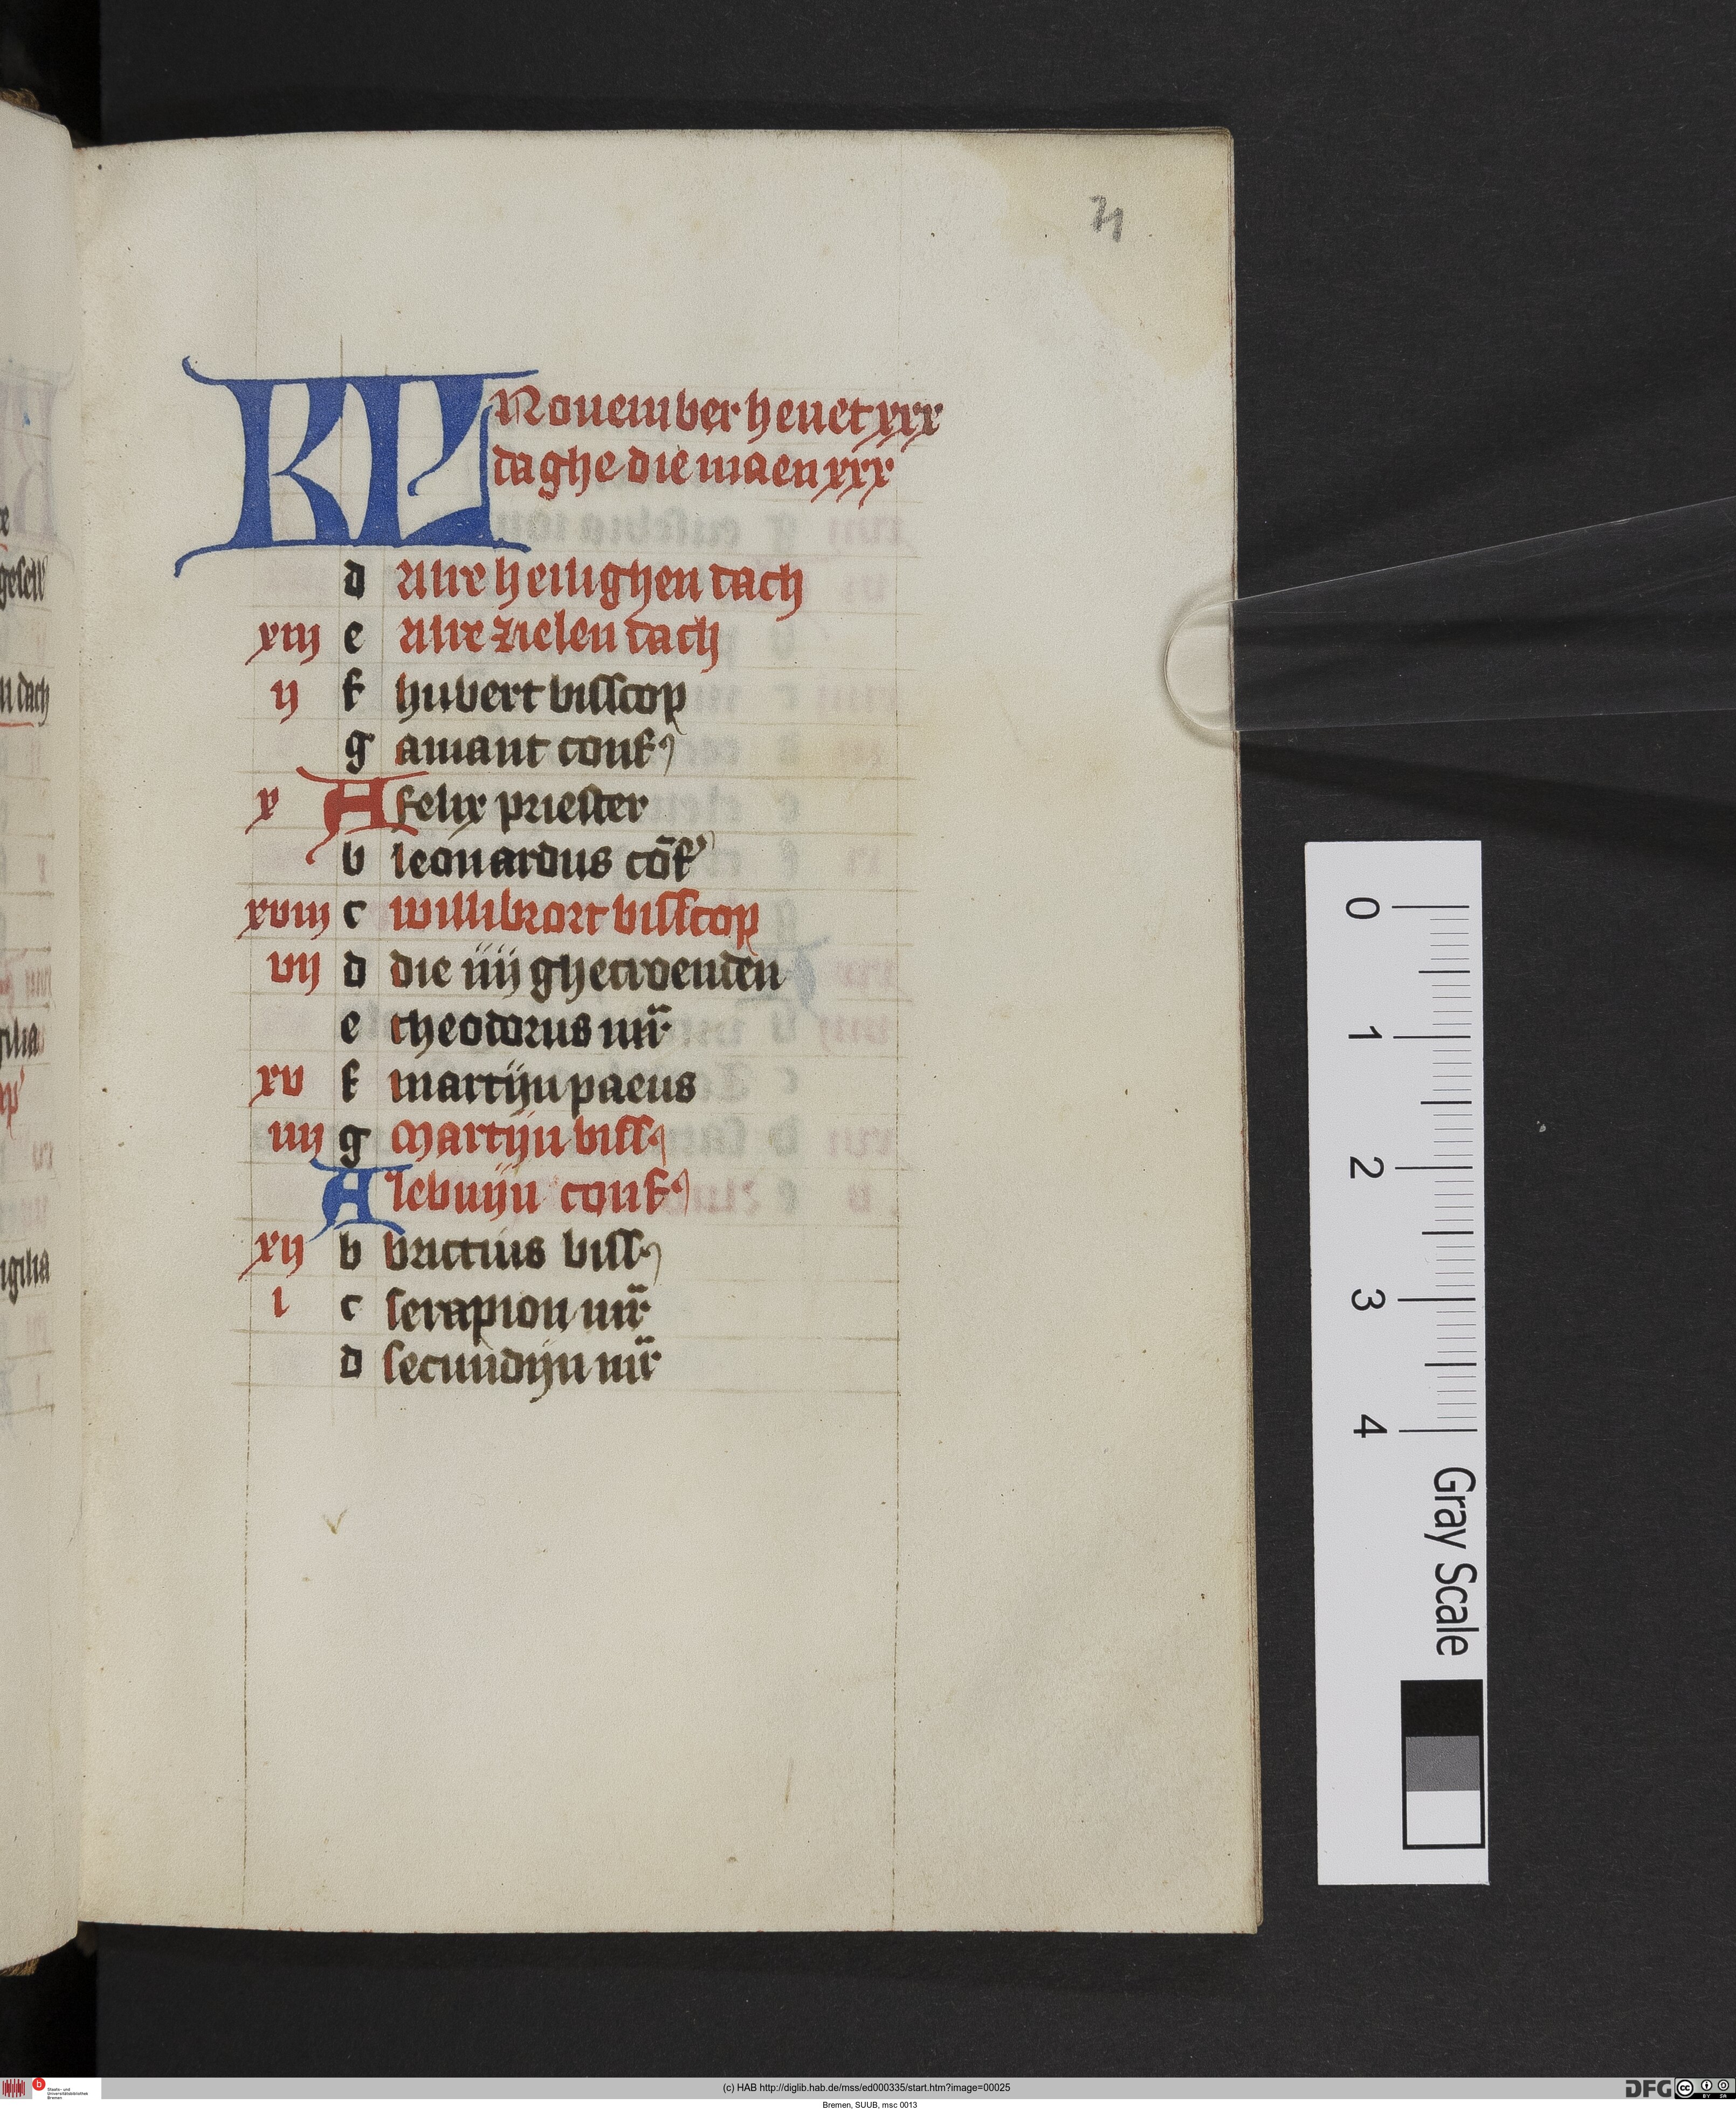 21
KL Nouember heuet xxx
daghe die maen xxx
d Alre heilighen dach
xiij e Alre zielen dach
ij f hubert bisscop
g amant conf
x A felix priester
b leonardus cōf
xviij c willibrort bisscop
vij d die iiij ghecroenden
e theodorus mr
xv f martijn paeus
iiij g Martijn biss
A lebuijn conf
xij b brictius biss
i c serapion mr
d secundijn mr
0
1
2
3
4
Gray Scale
(c) HAB http://diglib.hab.de/mss/ed000335/start.htm?image=00025
Bremen, SUUB, msc 0013
Staats- und
Universitätsbibliothek
Bremen
DFG